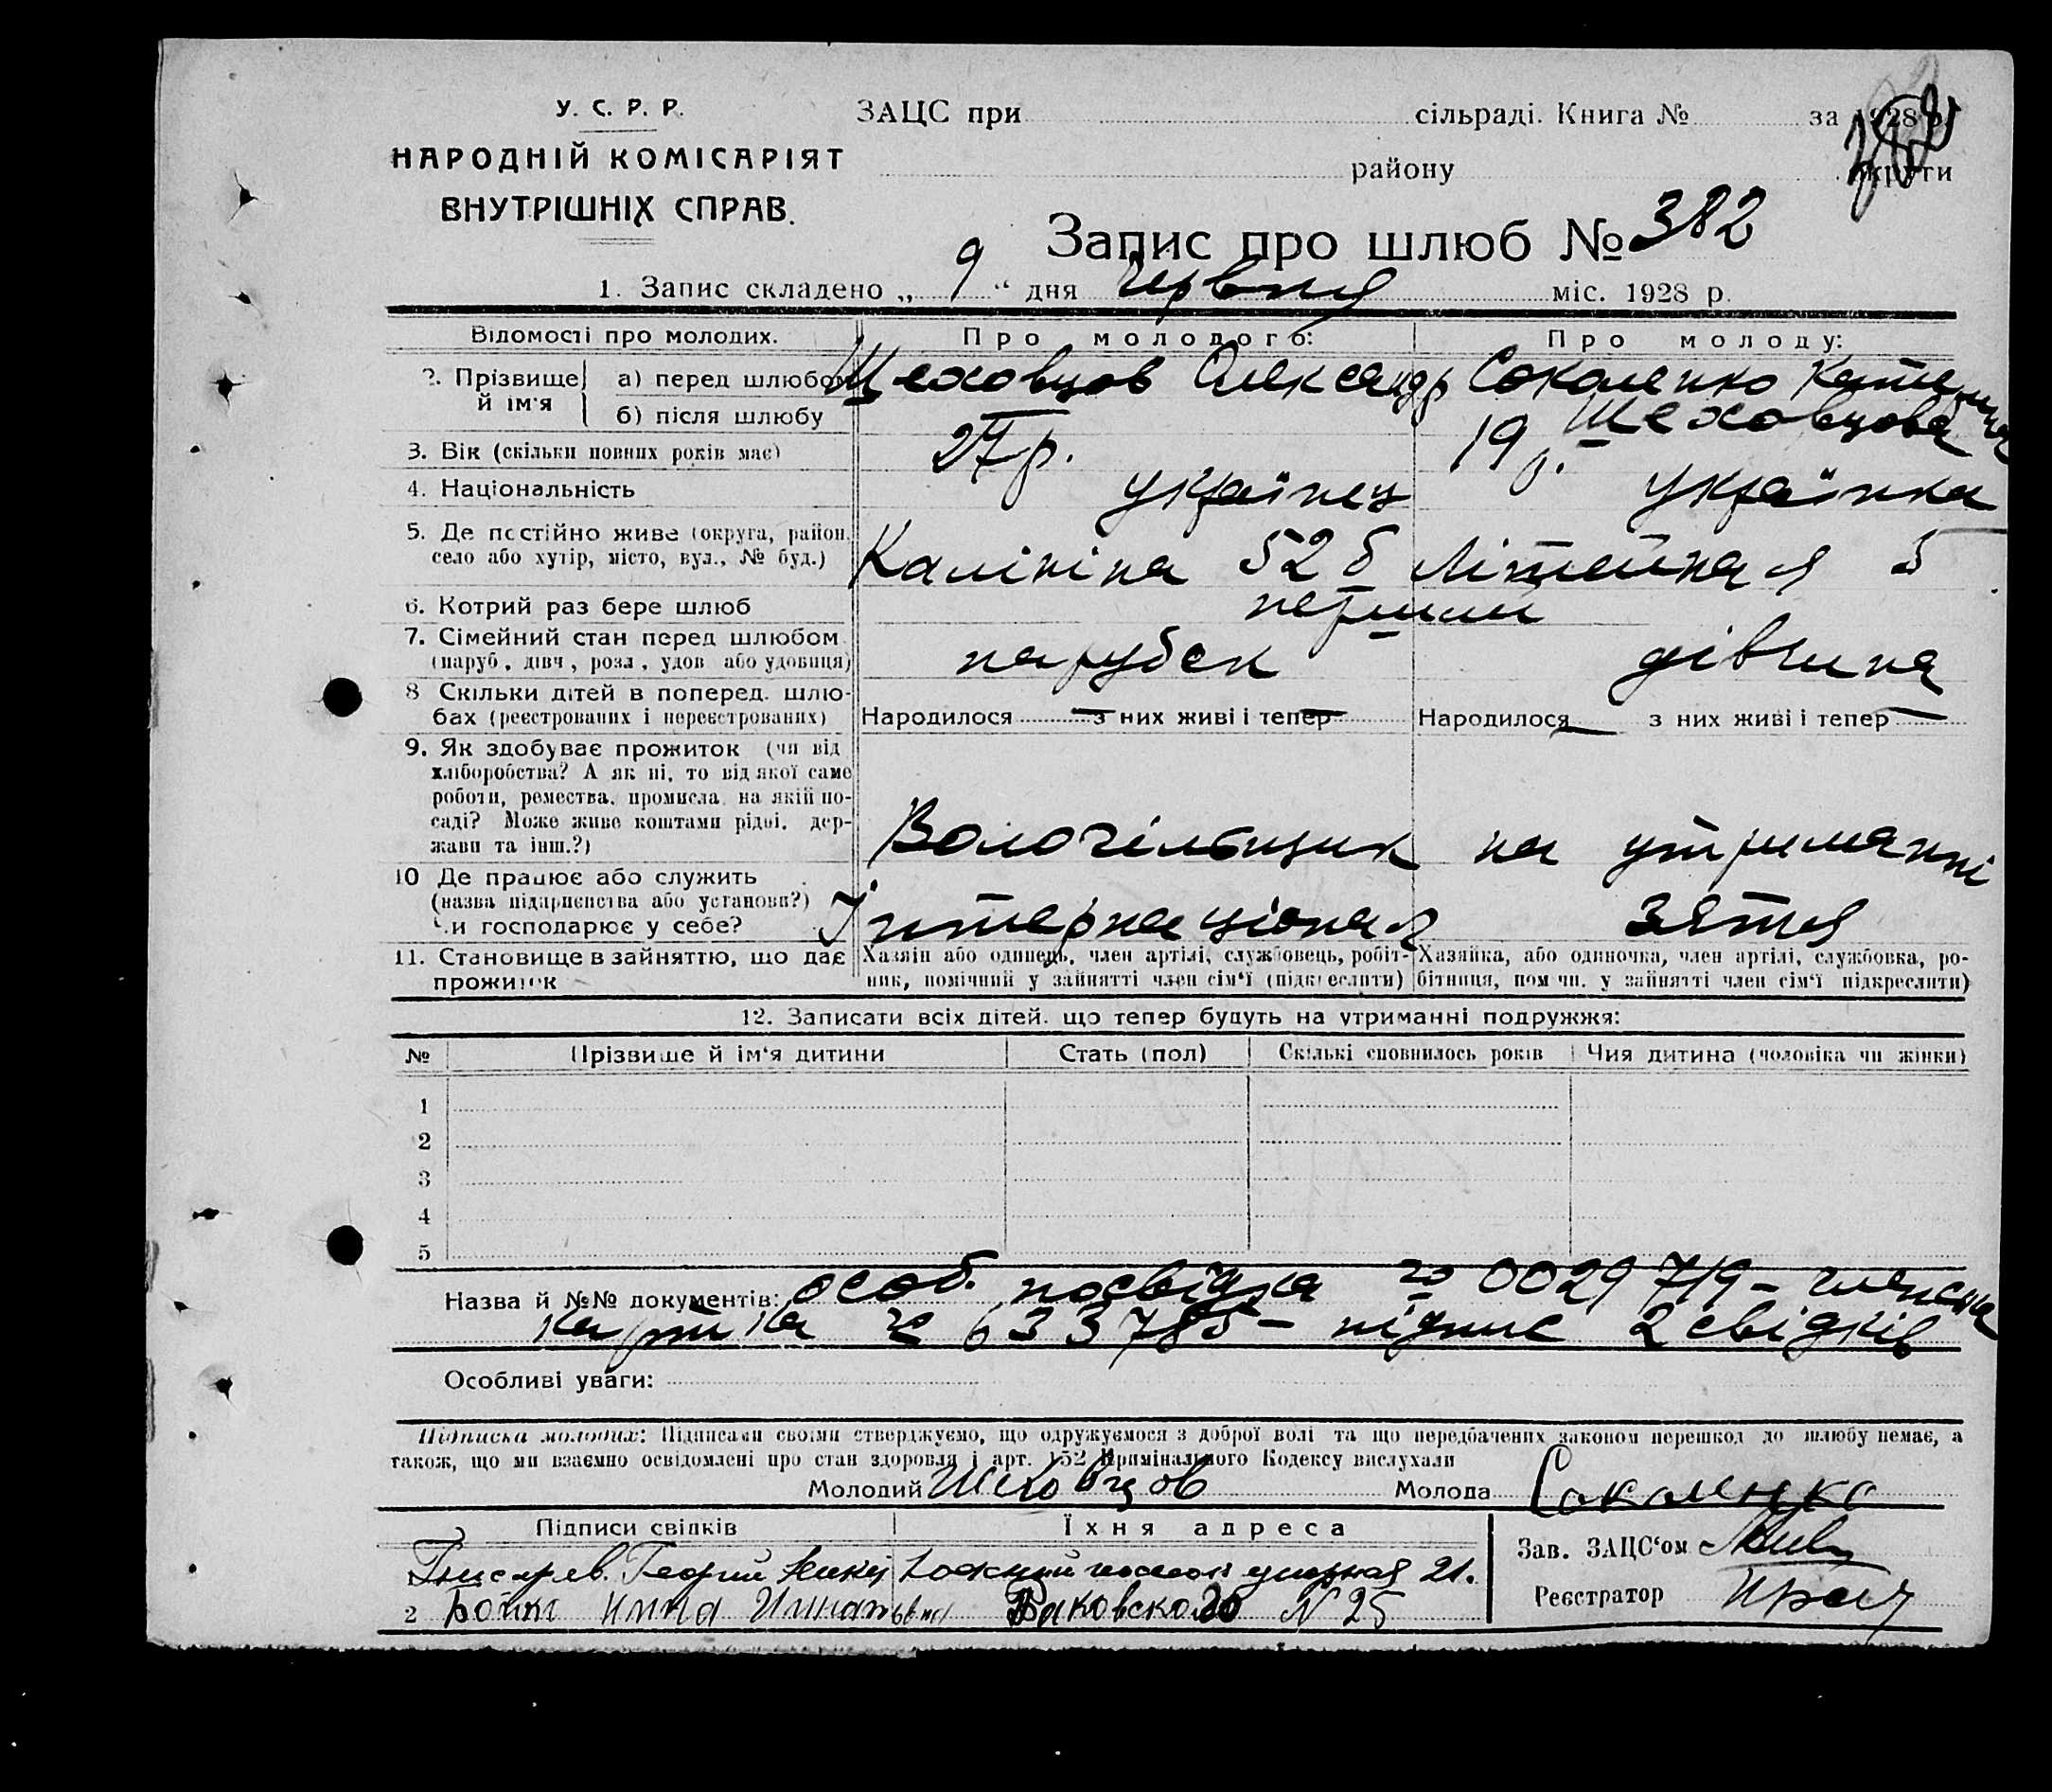 У. С. Р. Р.
НАРОДНІЙ КОМІСАРІЯТ
ВНУТРІШНІХ СПРАВ.
ЗАЦС при сільраді. Книга № за 1928 р.
району округи
Запис про шлюб № 382
1. Запис складено „ 9 “ дня Червня міс. 1928 р.
Відомості про молодих. Про молодого: Про молоду:
2. Прізвище й ім'я а) перед шлюбом Шеховцов Олександр Соколенко Катерина
б) після шлюбу Шеховцова
3. Вік (скільки повних років має) 27 р. 19 р.
4. Національність українец українка
5. Де постійно живе (округа, район,
село або хутір, місто, вул., № буд.) Калініна 52 б Літейная 5
6. Котрий раз бере шлюб перший
7. Сімейний стан перед шлюбом
(паруб., дівч., розл., удов. або удовиця) парубок дівчина
8 Скільки дітей в поперед. шлю-
бах (реєстрованих і нереєстрованих) Народилося — з них живі і тепер — Народилося — з них живі і тепер —
9. Як здобуває прожиток (чи від
хліборобства? А як ні, то від якої саме
роботи, ремества, промисла, на якій по-
саді? Може живе коштами рідні, дер-
жави та інш.?) на утриманні
10 Де працює або служить
(назва підприємства або установи?)
Чи господарює у себе? Інтернаціонал зятя
11. Становище в зайняттю, що дає
прожиток
Хазяїн або одинець, член артілі, службовець, робіт-
ник, помічний у зайнятті член сім'ї (підкреслити)
Хазяйка, або одиночка, член артілі, службовка, ро-
бітниця, помічн. у зайнятті член сім'ї підкреслити)
12. Записати всіх дітей, що тепер будуть на утриманні подружжя:
№ Прізвище й ім'я дитини Стать (пол) Скількі сповнилось років Чия дитина (чоловіка чи жінки)
1
2
3
4
5
Назва й №№ документів: особ. посвідка № 0029719 – членська
картка № 633785 – підпис 2 свідків
Особливі уваги:
Підписка молодих: Підписами своїми стверджуємо, що одружуємося з доброї волі та що передбачених законом перешкод до шлюбу немає, а
також, що ми взаємно освідомлені про стан здоровля і арт. 152 Кримінального Кодексу вислухали
Молодий Шеховцов Молода Сокаленко
Підписи свідків Їхня адреса
Георгий 21.
2 Раковского N 25
Зав. ЗАЦС'ом
Реєстратор